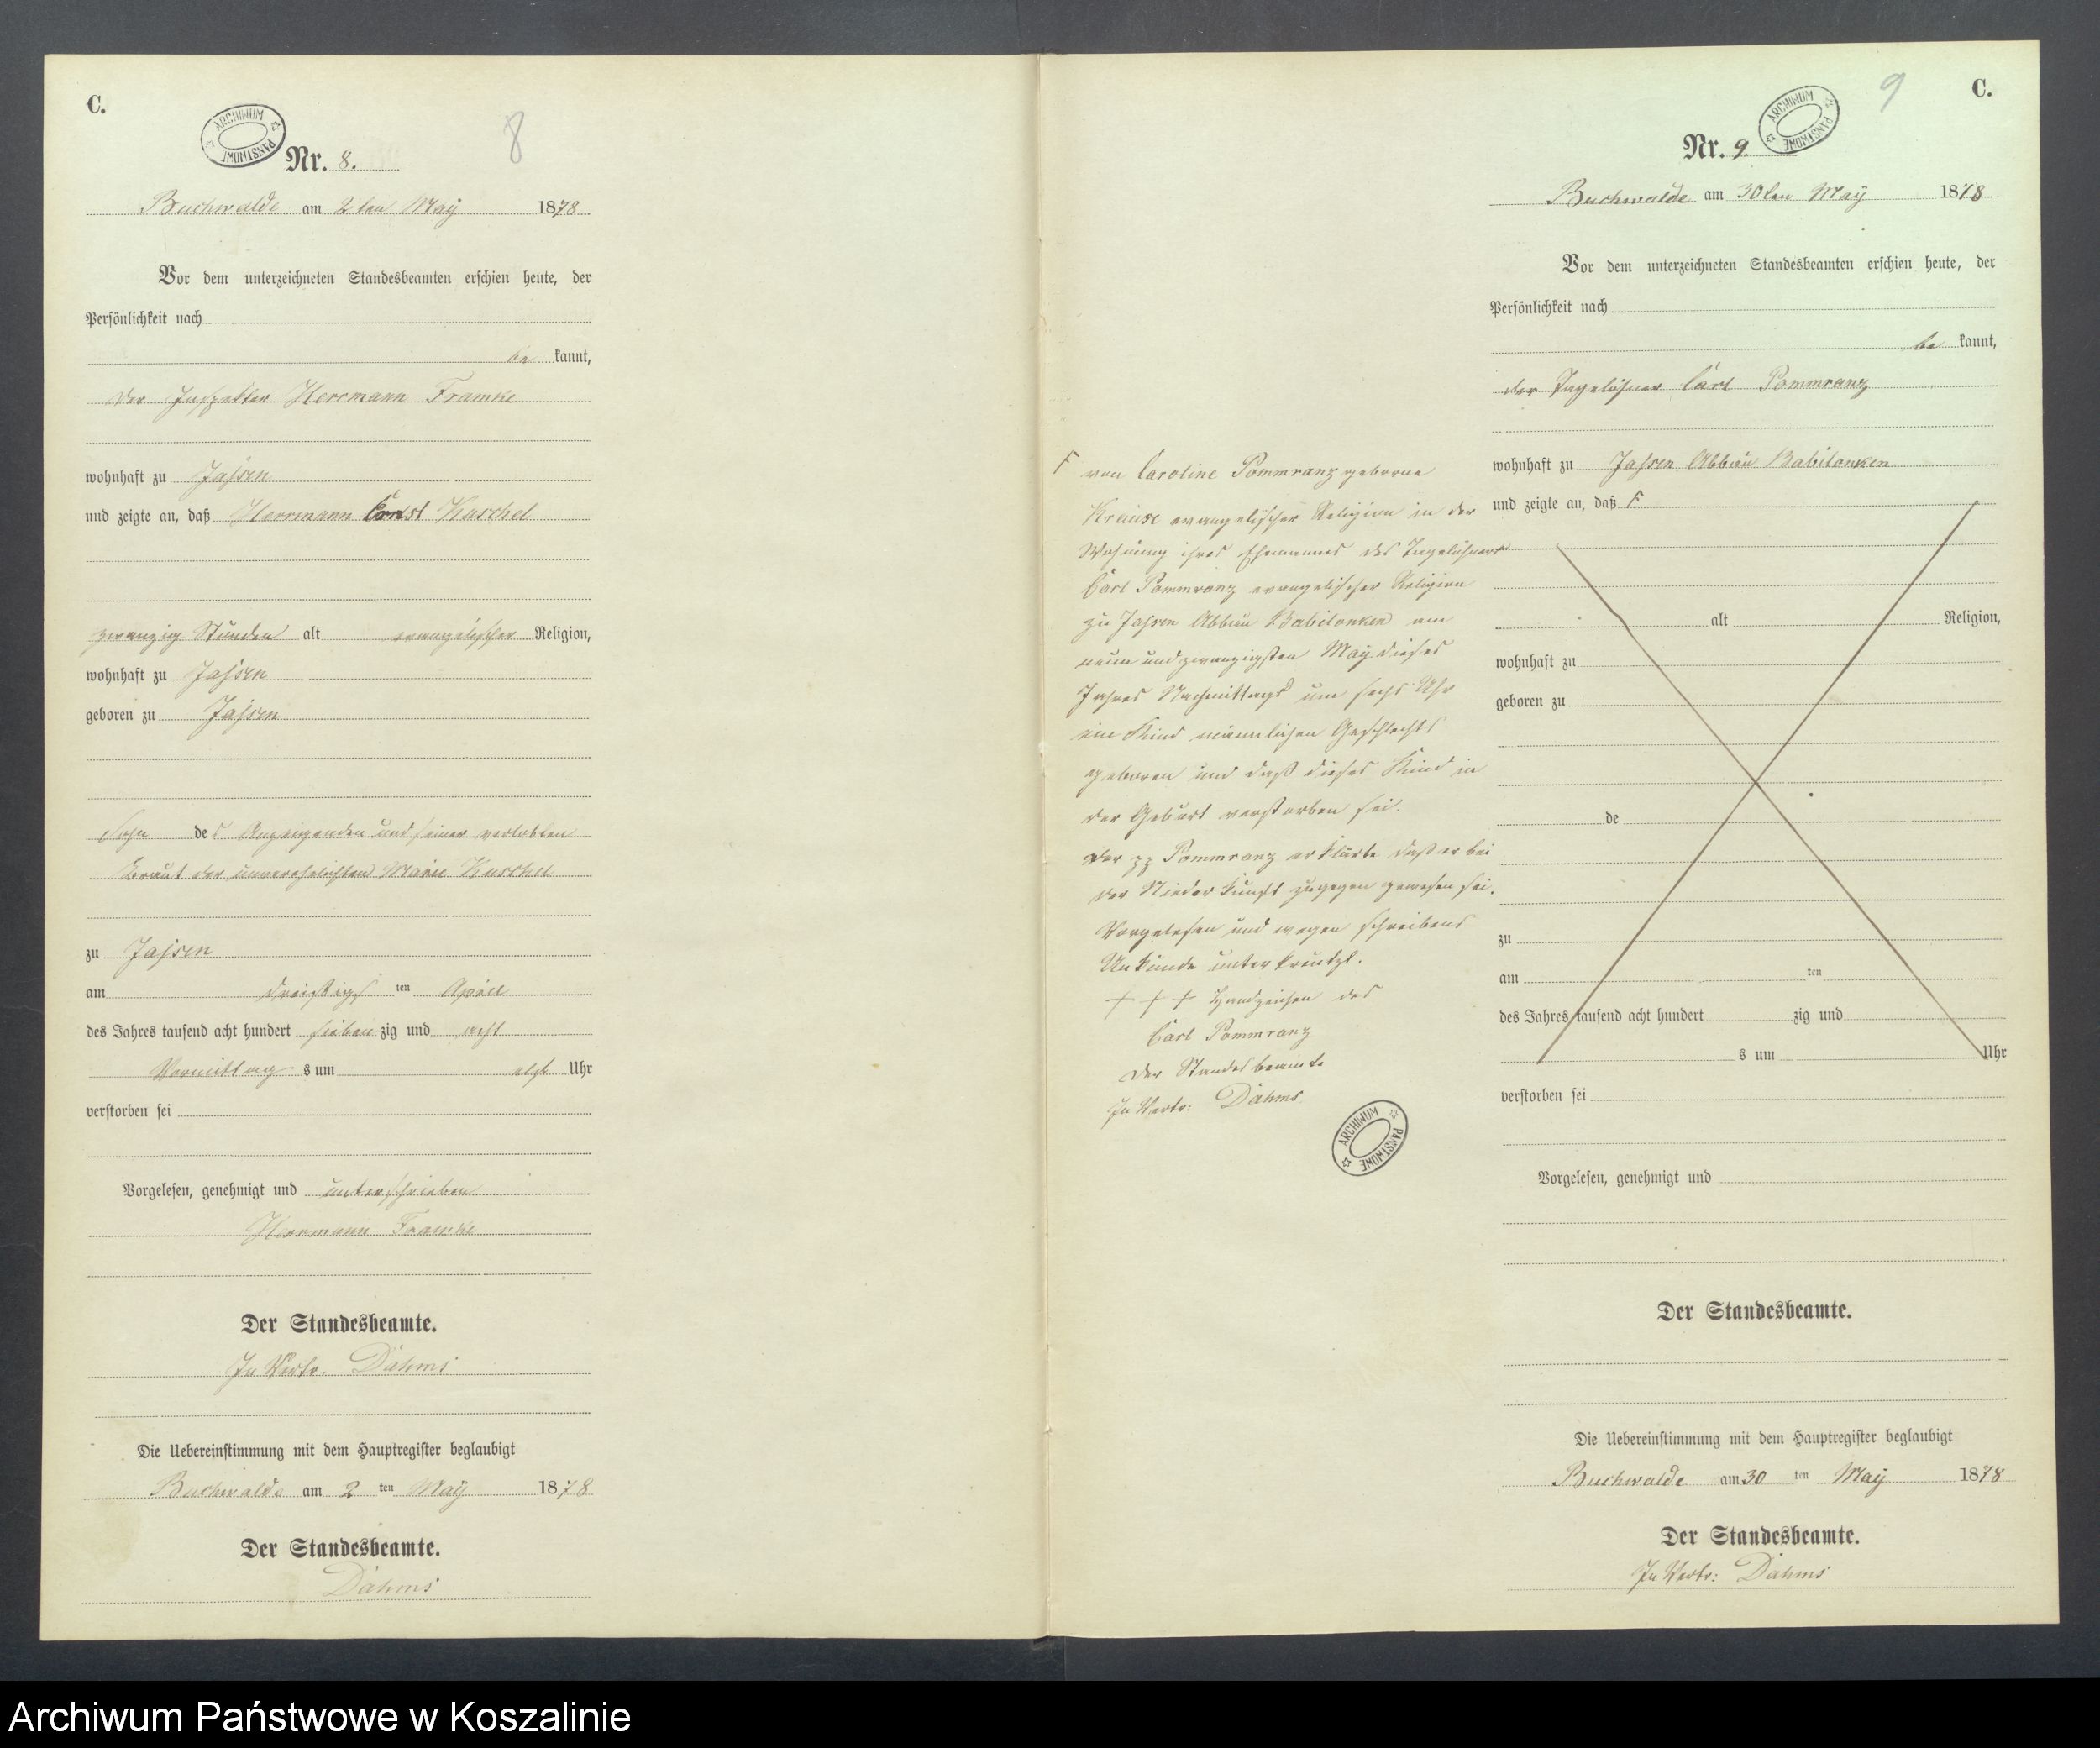 C.
ARCHIWUM PAŃSTWOWE
8
Nr. 8.
Buchwalde am 2ten May 1878
Vor dem unterzeichneten Standesbeamten erschien heute, der
Persönlichkeit nach
be kannt,
der Inspektor Herrmann Framke
wohnhaft zu Jassen
und zeigte an, daß Herrmann Ernst Kuschel
zwanzig Stunden alt evangelischer Religion,
wohnhaft zu Jassen
geboren zu Jassen
Sohn des Anzeigenden und seiner verlobten
Braut der unverehelichten Marie Kuschel
zu Jassen
am dreißigs ten April
des Jahres tausend acht hundert sieben zig und acht
Vormittag s um elf Uhr
verstorben sei
Vorgelesen, genehmigt und unterschrieben
Herrmann Framke
Der Standesbeamte.
In Vertr. Dahms
Die Uebereinstimmung mit dem Hauptregister beglaubigt
Buchwalde am 2 ten May 1878
Der Standesbeamte.
Dahms
9
C.
ARCHIWUM PAŃSTWOWE
Nr. 9.
Buchwalde am 30ten May 1878
Vor dem unterzeichneten Standesbeamten erschien heute, der
Persönlichkeit nach
be kannt,
der Tagelöhner Carl Pommranz
wohnhaft zu Jassen Abbau Babilonken
und zeigte an, daß F
F von Caroline Pommranz geborne
Krause evangelischer Religion in der
Wohnung ihres Ehemannes des Tagelöhners
Carl Pommranz evangelischer Religion
zu Jassen Abbau Babilonken am
neun und zwanzigsten May dieses
Jahres Nachmittags um sechs Uhr
ein Kind männlichen Geschlechts
geboren und daß dieses Kind in
der Geburt verstorben sei.
Der pp Pommranz erklärte daß er bei
der Niederkunft zugegen gewesen sei.
Vorgelesen und wegen Schreibens
Unkunde unterkreuzt.
+ + + Handzeichen des
Carl Pommranz
Der Standesbeamte
In Vertr: Dahms
ARCHIWUM PAŃSTWOWE
alt Religion,
wohnhaft zu
geboren zu
de
zu
am ten
des Jahres tausend acht hundert zig und
s um Uhr
verstorben sei
Vorgelesen, genehmigt und
Der Standesbeamte.
Die Uebereinstimmung mit dem Hauptregister beglaubigt
Buchwalde am 30 ten May 1878
Der Standesbeamte.
In Vertr: Dahms
Archiwum Państwowe w Koszalinie